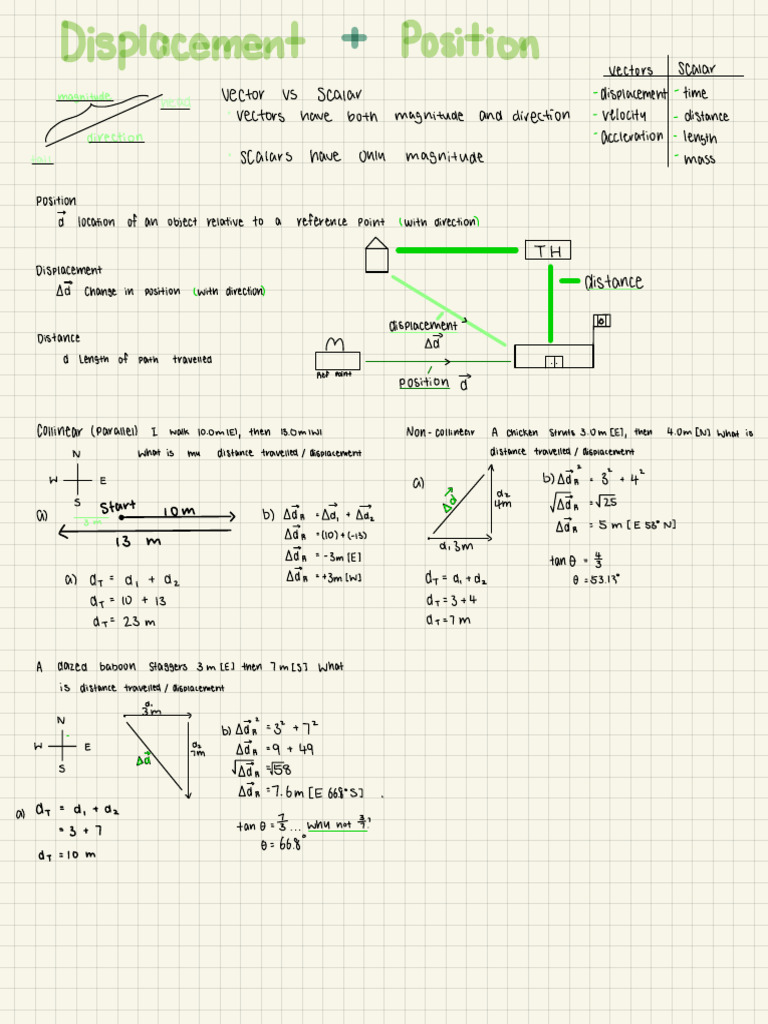 Displacement + Position
vectors scalar
- displacement - time
- velocity - distance
- accleration - length
- mass
magnitude
head
direction
tail
vector vs scalar
vectors have both magnitude and direction
scalars have only magnitude
Position
d⃗ location of an object relative to a reference point (with direction)
Displacement
Δd⃗ Change in position (with direction)
Distance
d Length of path travelled
TH
distance
displacement
Δd⃗
Ref Point
position d⃗
Collinear (parallel) I walk 10.0m[E], then 13.0m[W]
What is my distance travelled / displacement
N
W E
S
a)
Start
10m
3m
13 m
a) dT = d1 + d2
dT = 10 + 13
dT = 23 m
b) Δd⃗R = Δd⃗1 + Δd⃗2
Δd⃗R = (10) + (-13)
Δd⃗R = -3m [E]
Δd⃗R = +3m [W]
Non-collinear A chicken struts 3.0m [E], then 4.0m [N] what is
distance travelled / displacement
a)
Δd⃗
d2
4m
d1 3m
dT = d1 + d2
dT = 3 + 4
dT = 7 m
b) Δd⃗R² = 3² + 4²
√Δd⃗R = √25
Δd⃗R = 5 m [E 53° N]
tan θ = 4/3
θ = 53.13°
A dazed baboon staggers 3m [E] then 7m [S] What
is distance travelled / displacement
N
W E
S
d1
3m
d2
7m
Δd⃗
a) dT = d1 + d2
= 3 + 7
dT = 10 m
b) Δd⃗R² = 3² + 7²
Δd⃗R = 9 + 49
√Δd⃗R = √58
Δd⃗R = 7.6m [E 66.8° S]
tan θ = 7/3 ... why not 3/7?
θ = 66.8°